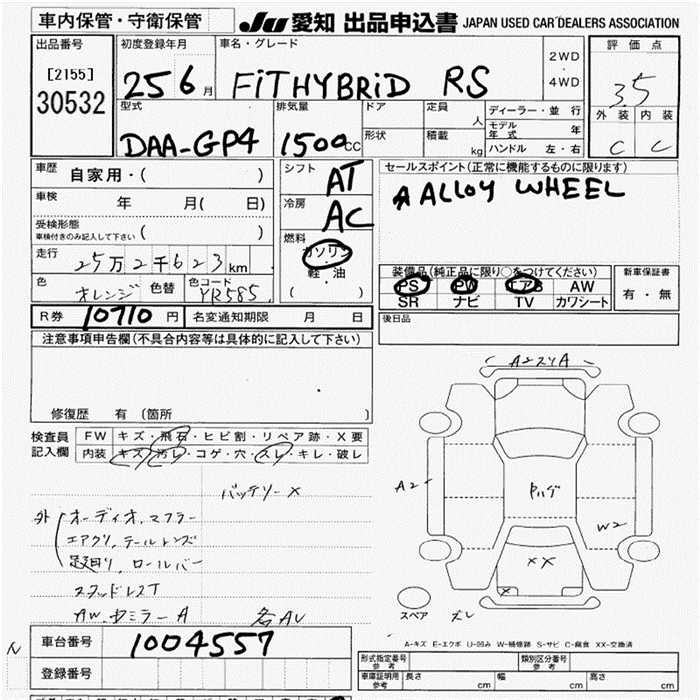 車内保管・守衛保管
JU 愛知 出品申込書 JAPAN USED CAR DEALERS ASSOCIATION
出品番号
[2155]
30532
初度登録年月
25 6 月
車名・グレード
FiT HYBRiD RS
2WD
・
4WD
評価点
35
外装 内装
C C
型式
DAA-GP4
排気量
1500 CC
ドア
形状
定員
人
積載
kg
ディーラー・並行
モデル年式 年
ハンドル 左・右
車歴 自家用・( )
車検 年 月( 日)
受検形態
車検付きのみ記入して下さい ( )
走行 25万2千623 km
色 オレンジ 色替 色コード YR585
シフト
AT
冷房
AC
燃料
ガソリン
軽・油
( )
セールスポイント(正常に機能するものに限ります)
A ALLOY WHEEL
装備品(純正品に限り○をつけてください)
PS PW エアB AW
SR ナビ TV カワシート
新車保証書
有・無
R券 10710 円 名変通知期限 月 日
後日品
注意事項申告欄(不具合内容等は具体的に記入して下さい)
修復歴 有 (箇所 )
検査員
記入欄
FW キズ・飛石・ヒビ割・リペア跡・X要
内装 キズ・汚レ・コゲ・穴・スレ・キレ・破レ
バッテリーX
外 オーディオ、マフラー
エアクリ、テールレンズ
足回り、ロールバー
スタッドレスT
AW、ドミラーA 各AU
A2
W2
XX
X
スペア ズレ
A-キズ E-エクボ U-凹み W-補修跡 S-サビ C-腐食 XX-交換済
車台番号 1004557
登録番号
形式指定番号 参考
類別区分番号 参考
車庫証明用 参考 長さ cm 幅 cm 高さ cm